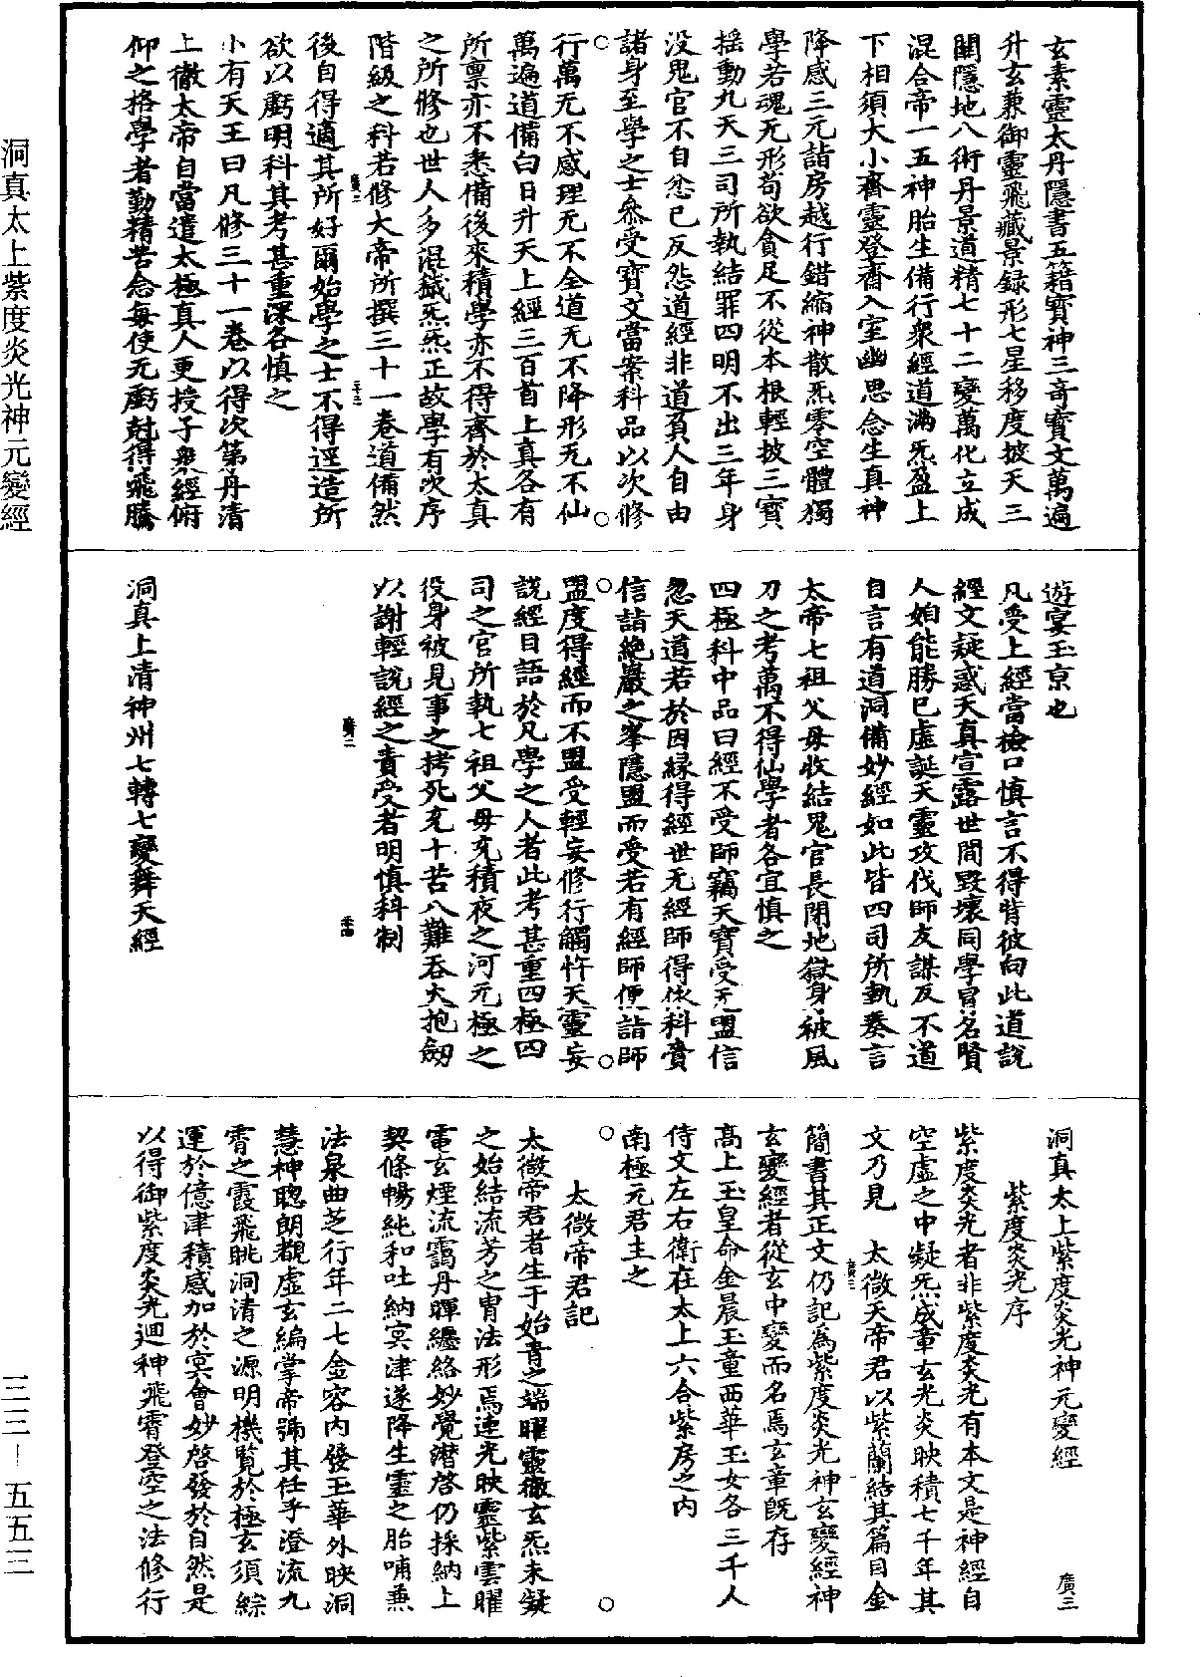 玄素靈太丹隱書五籍寶神三奇寶文萬遍
升玄兼御靈飛藏景録形七星移度披天三
關隱地八術丹景道精七十二變萬化立成
混合帝一五神胎生備行衆經道滿炁盈上
下相須大小齊靈登齋入室幽思念生真神
降感三元詣房越行錯縮神散炁零空體獨
學若魂无形苟欲貪足不從本根輕披三寶
揺動九天三司所執結罪四明不出三年身
没鬼官不自忿已反怨道經非道負人自由
諸身至學之士叅受寶文當案科品以次修
行萬无不感理无不全道无不降形无不仙
萬遍道備白日升天上經三百首上真各有
所禀亦不悉備後來積學亦不得齊於太真
之所修也世人多混籤炁炁正故學有次序
階級之科若修大帝所撰三十一卷道備然
後自得適其所好爾始學之士不得逕造所
欲以虧明科其考甚重深各慎之
小有天王曰凡修三十一卷以得次第丹清
上徹太帝自當遣太極真人更授子衆經俯
仰之格學者勤精苦念毎使无虧尅得飛騰
遊宴玉京也
凡受上經當檢口慎言不得背彼向此道說
經文疑惑天真宣露世間毀壞同學冒名賢
人妬能勝已虛誕天靈攻伐師友謀反不道
自言有道洞備妙經如此皆四司所執奏言
太帝七祖父毋收結鬼官長閉地獄身被風
刀之考萬不得仙學者各宜慎之
四極科中品曰經不受師竊天寶受无盟信
忽天道若於因緣得經世无經師得依科賫
信詣絶巖之峯隱盟而受若有經師便詣師
盟度得經而不盟受輕妄修行觸忤天靈妄
說經目語於凡學之人者此考甚重四極四
司之官所執七祖父毋充積夜之河元極之
役身被見事之拷死充十苦八難吞火抱劔
以謝輕說經之責受者明慎科制
洞真上清神州七轉七變舞天經
洞真太上紫度炎光神元變經
廣三
紫度炎光序
紫度炎光者非紫度炎光有本文是神經自
空虛之中凝炁成章玄光炎映積七千年其
文乃見　太微天帝君以紫蘭結其篇目金
簡書其正文仍記爲紫度炎光神玄變經神
玄變經者從玄中變而名焉玄章旣存
高上玉皇命金晨玉童西華玉女各三千人
侍文左右衛在太上六合紫房之内
南極元君主之
太微帝君記
太微帝君者生于始青之端曜靈徹玄炁未凝
之始結流芳之胄法形焉連光映靈紫雲曜
電玄煙流靄丹暉纒絡妙覺潛啓仍採納上
契條暢純和吐納冥津遂降生靈之胎哺兼
法泉曲芝行年二七金容内發玉華外映洞
慧神聦朗覩虛玄編掌帝號其任乎澄流九
霄之霞飛眺洞清之源明機覽於極玄須綜
運於億津積感加於冥會妙啓發於自然是
以得御紫度炎光迴神飛霄登空之法修行
洞真太上紫度炎光神元變經
三三—五五三